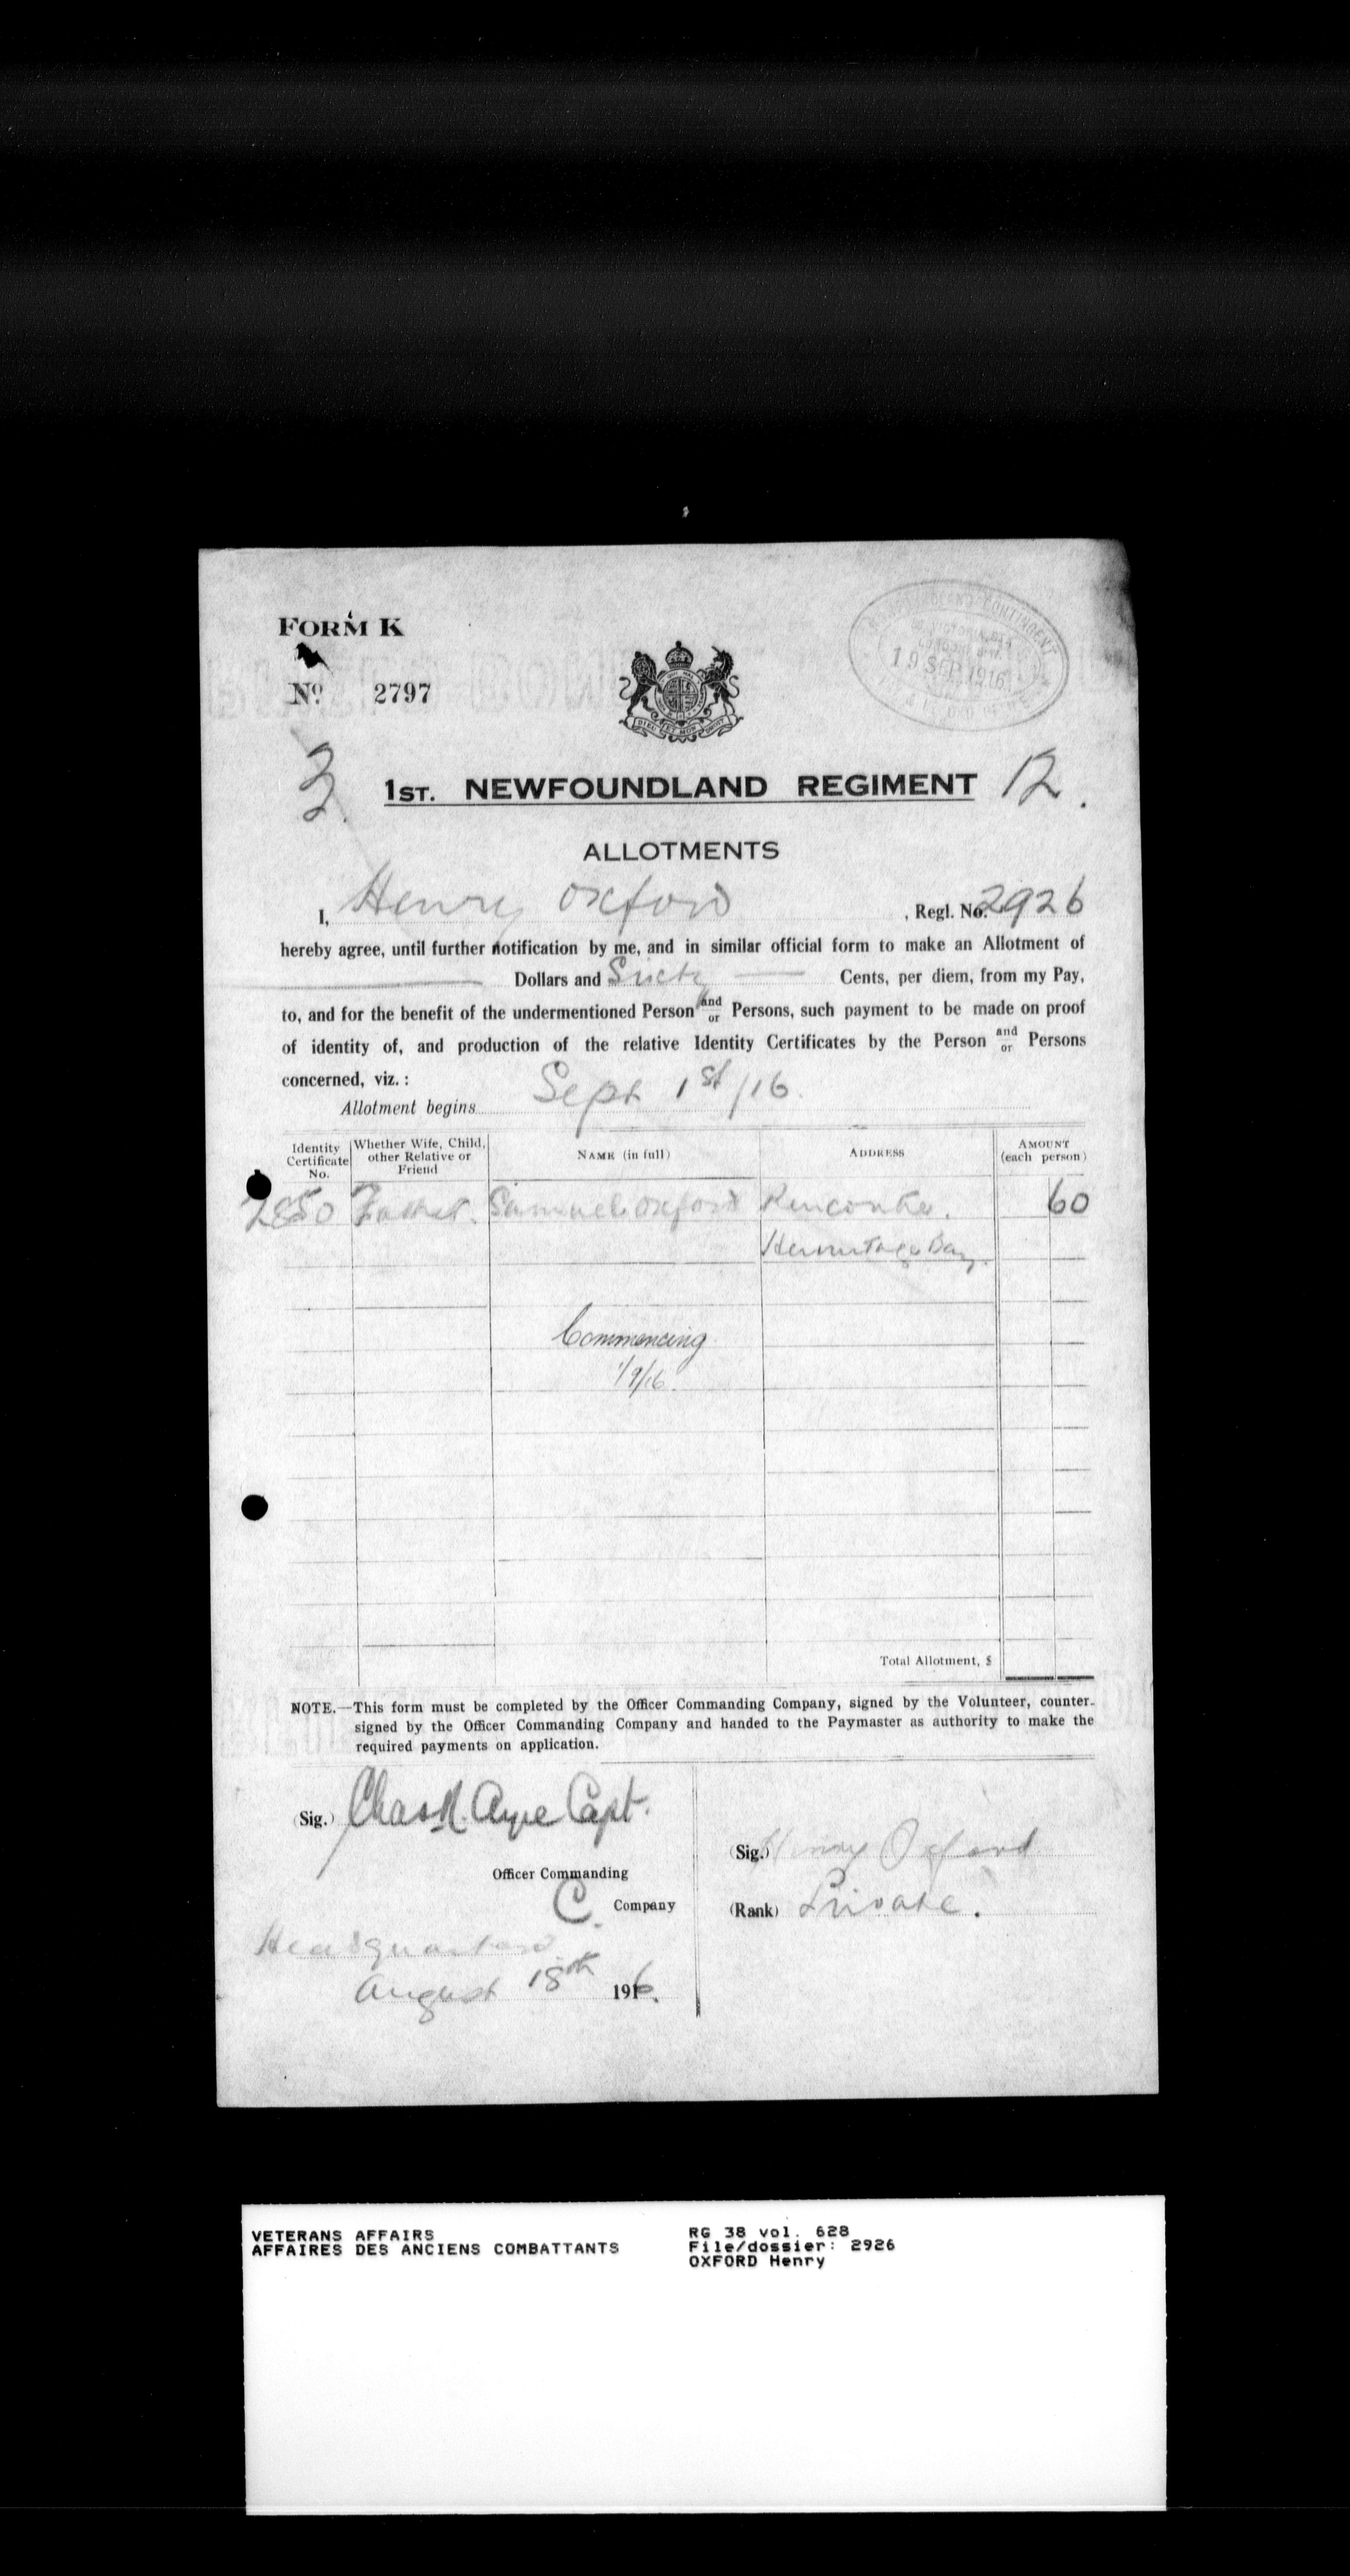 FORM K
NEWFOUNDLAND CONTINGENT
58, VICTORIA ST.
LONDON, S.W.
19 SEP 1916
No 2797
DIEU ET MON DROIT
1ST. NEWFOUNDLAND REGIMENT 12.
ALLOTMENTS
I, Henry Oxford , Regl. No. 2926
hereby agree, until further notification by me, and in similar official form to make an Allotment of
Dollars and Sixty Cents, per diem, from my Pay,
to, and for the benefit of the undermentioned Person and or Persons, such payment to be made on proof
of identity of, and production of the relative Identity Certificates by the Person and or Persons
concerned, viz. :
Allotment begins Sept 1st/16.
Identity Certificate No. Whether Wife, Child, other Relative or Friend NAME (in full) ADDRESS AMOUNT (each person)
2850 Father. Samuel Oxford Rencontre. 60
Hermitage Bay.
Commencing
1/9/16.
Total Allotment, $
NOTE.—This form must be completed by the Officer Commanding Company, signed by the Volunteer, counter-
signed by the Officer Commanding Company and handed to the Paymaster as authority to make the
required payments on application.
(Sig.) Chas R. Ayre Capt.
Officer Commanding
C. Company
(Sig.) Henry Oxford
(Rank) Private.
Headquarters
August 18th 1916.
VETERANS AFFAIRS
AFFAIRES DES ANCIENS COMBATTANTS
RG 38 vol. 628
File/dossier: 2926
OXFORD Henry